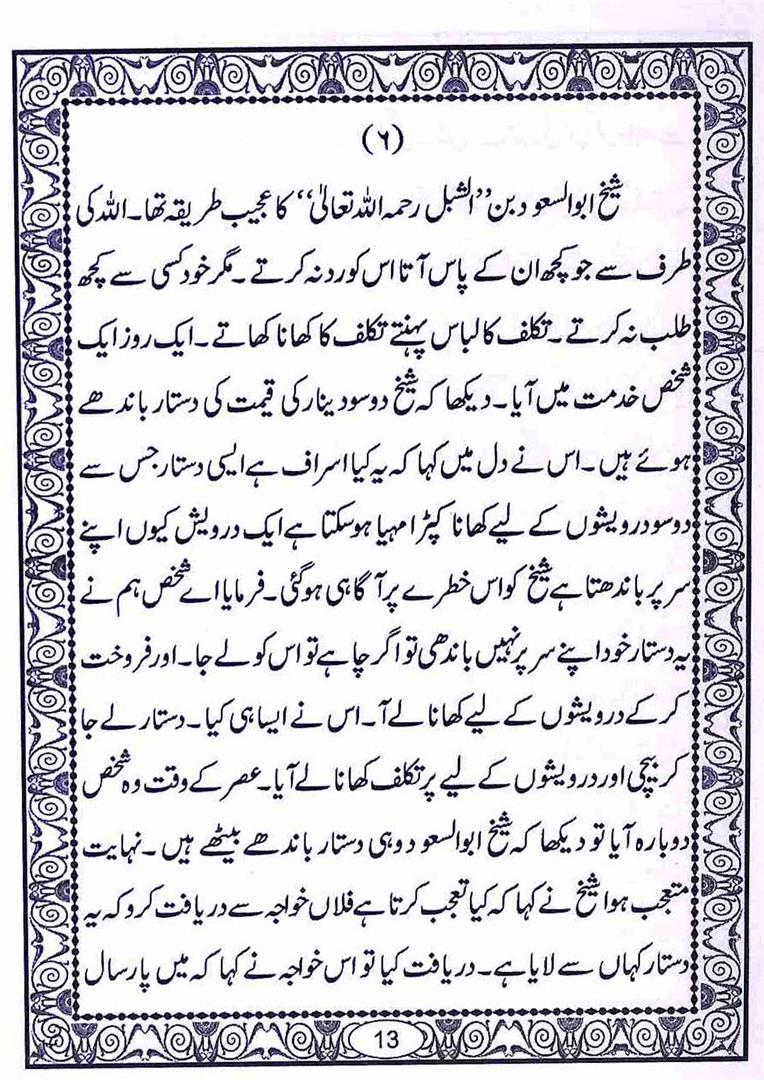 (۶)
شیخ ابوالسعود بن ’’الشبل رحمہ اللہ تعالیٰ‘‘ کا عجیب طریقہ تھا۔ اللہ کی
طرف سے جو کچھ ان کے پاس آتا اس کو رد نہ کرتے ۔ مگر خود کسی سے کچھ
طلب نہ کرتے ۔ تکلف کا لباس پہنتے تکلف کا کھانا کھاتے ۔ ایک روز ایک
شخص خدمت میں آیا۔ دیکھا کہ شیخ دو سو دینار کی قیمت کی دستار باندھے
ہوئے ہیں ۔ اس نے دل میں کہا کہ یہ کیا اسراف ہے ایسی دستار جس سے
دو سو درویشوں کے لیے کھانا کپڑا مہیا ہوسکتا ہے ایک درویش کیوں اپنے
سر پر باندھتا ہے شیخ کو اس خطرے پر آگاہی ہوگئی ۔ فرمایا اے شخص ہم نے
یہ دستار خود اپنے سر پر نہیں باندھی تو اگر چاہے تو اس کو لے جا۔ اور فروخت
کر کے درویشوں کے لیے کھانا لے آ۔ اس نے ایسا ہی کیا۔ دستار لے جا
کر بیچی اور درویشوں کے لیے پر تکلف کھانا لے آیا۔ عصر کے وقت وہ شخص
دوبارہ آیا تو دیکھا کہ شیخ ابوالسعود وہی دستار باندھے بیٹھے ہیں ۔ نہایت
متعجب ہوا شیخ نے کہا کہ کیا تعجب کرتا ہے فلاں خواجہ سے دریافت کرو کہ یہ
دستار کہاں سے لایا ہے۔ دریافت کیا تو اس خواجہ نے کہا کہ میں پارسال
13